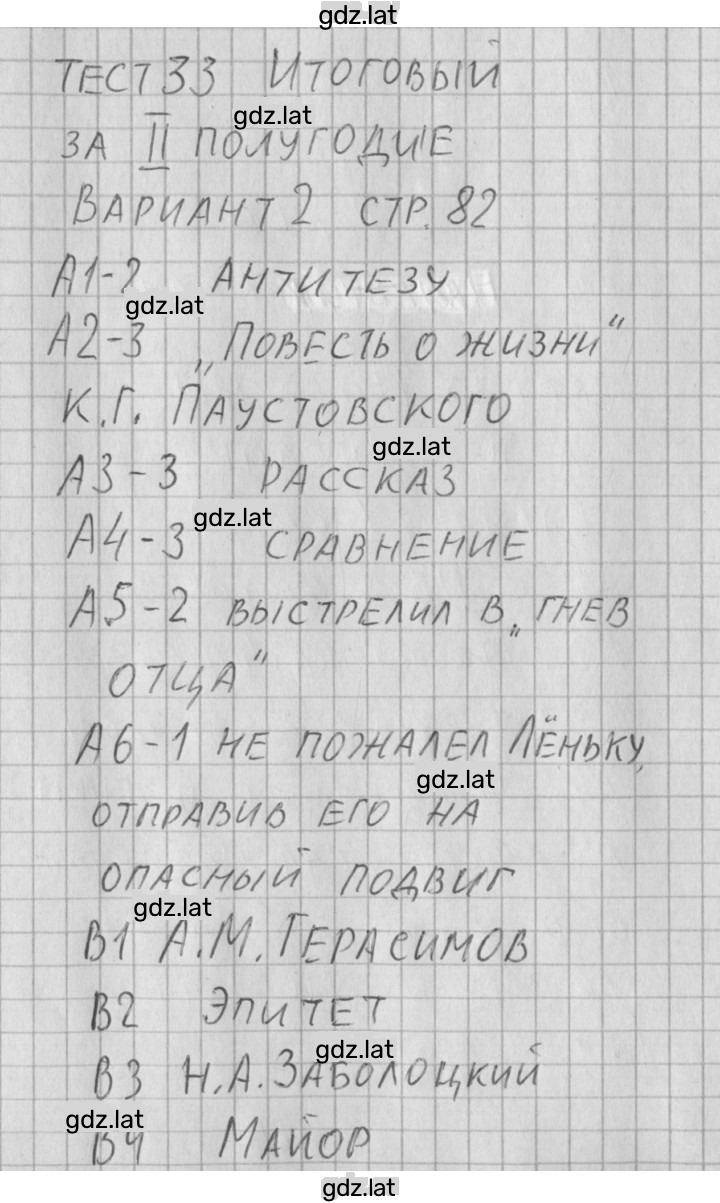 gdz.lat
ТЕСТ 33 ИТОГОВЫЙ
gdz.lat
ЗА II ПОЛУГОДИЕ
ВАРИАНТ 2 СТР. 82
А1-2 АНТИТЕЗУ
gdz.lat
А2-3 „ПОВЕСТЬ О ЖИЗНИ"
К.Г. ПАУСТОВСКОГО
gdz.lat
А3-3 РАССКАЗ
gdz.lat
А4-3 СРАВНЕНИЕ
А5-2 ВЫСТРЕЛИЛ В „ГНЕВ
ОТЦА"
А6-1 НЕ ПОЖАЛЕЛ ЛЁНЬКУ,
gdz.lat
ОТПРАВИВ ЕГО НА
ОПАСНЫЙ ПОДВИГ
gdz.lat
В1 А.М. ГЕРАСИМОВ
В2 ЭПИТЕТ
gdz.lat
В3 Н.А. ЗАБОЛОЦКИЙ
gdz.lat
В4 МАЙОР
gdz.lat